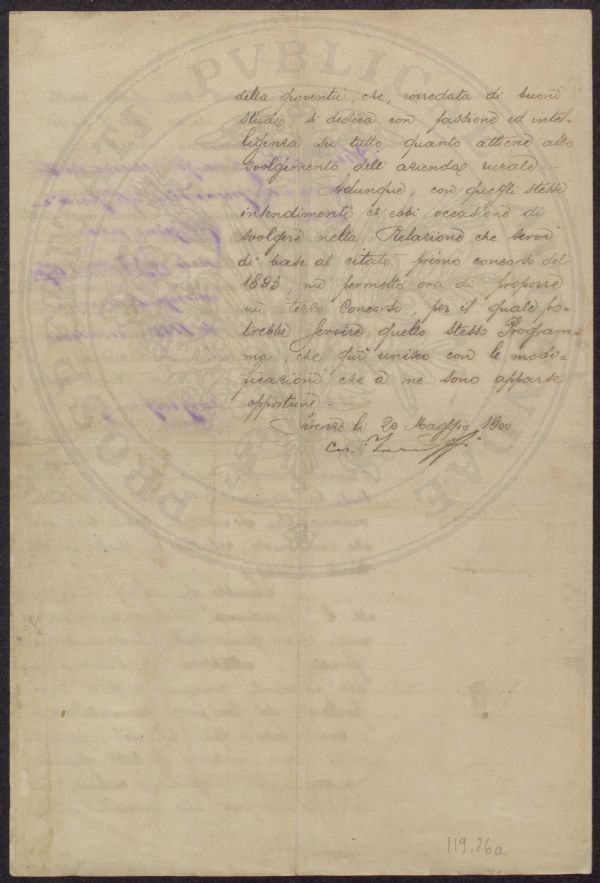 della gioventù, che, corredata di buoni
studi, si dedica con passione ed intel-
ligenza su tutto quanto attiene allo
svolgimento dell'azienda rurale. —
Adunque, con quegli stessi
intendimenti ch'ebbi occasione di
svolgere nella Relazione che servì
di base al citato primo concorso del
1893, mi permetto ora di proporre
un terzo Concorso, per il quale po-
trebbe servire quello stesso Program-
ma, che qui unisco con le modi-
ficazioni che a me sono apparse
opportune. —
Firenze li 20 Maggio 1900
119.26a
PROSPERITATI PVBLICAE AVGENDAE